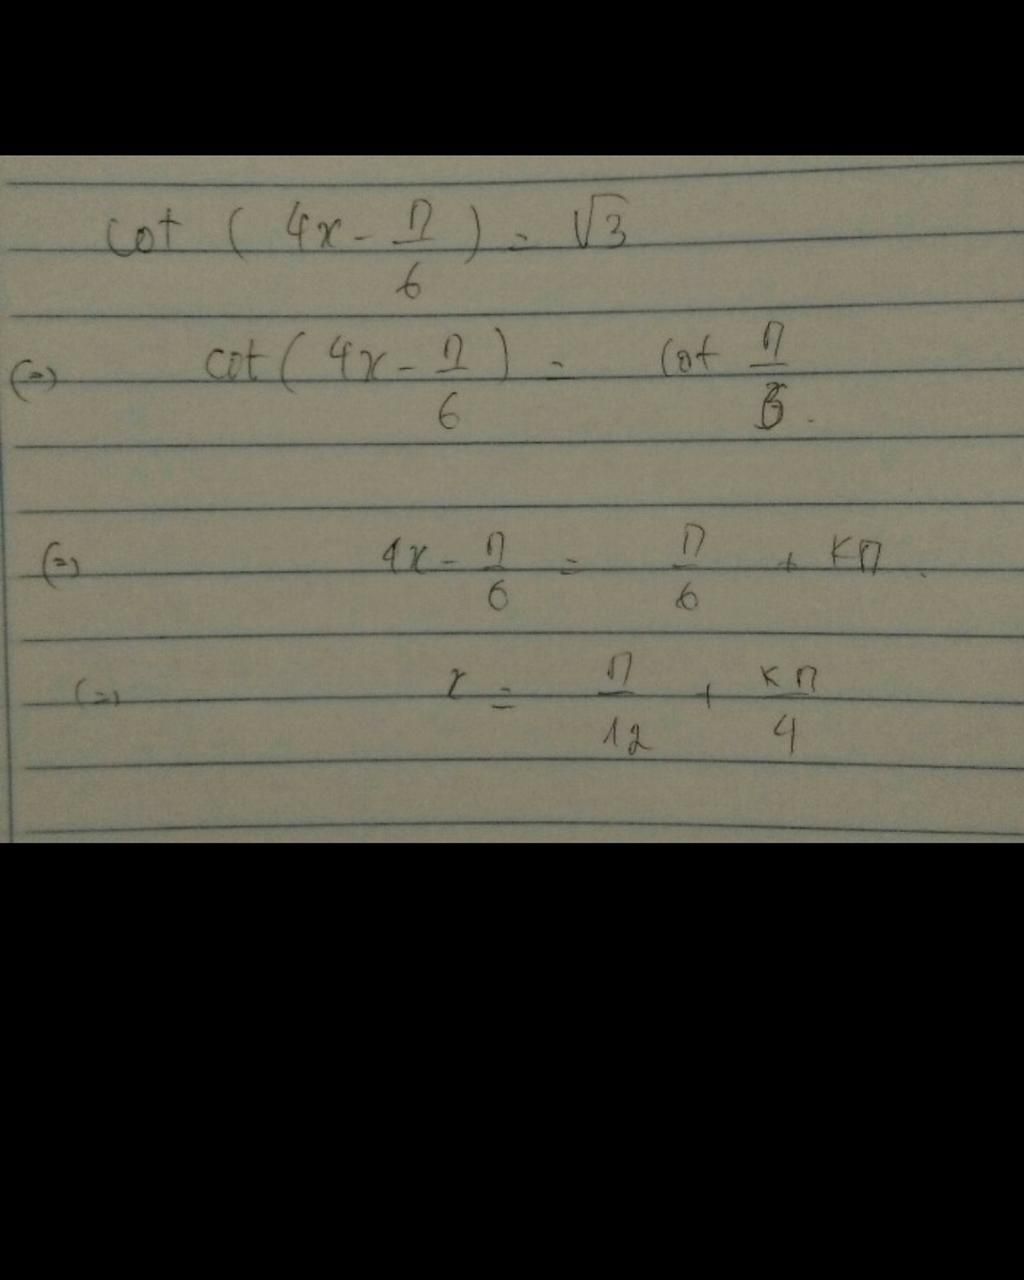 cot ( 4x - π/6 ) = √3
(=) cot ( 4x - π/6 ) = cot π/6.
(=) 4x - π/6 = π/6 + kπ.
(=) x = π/12 + kπ/4